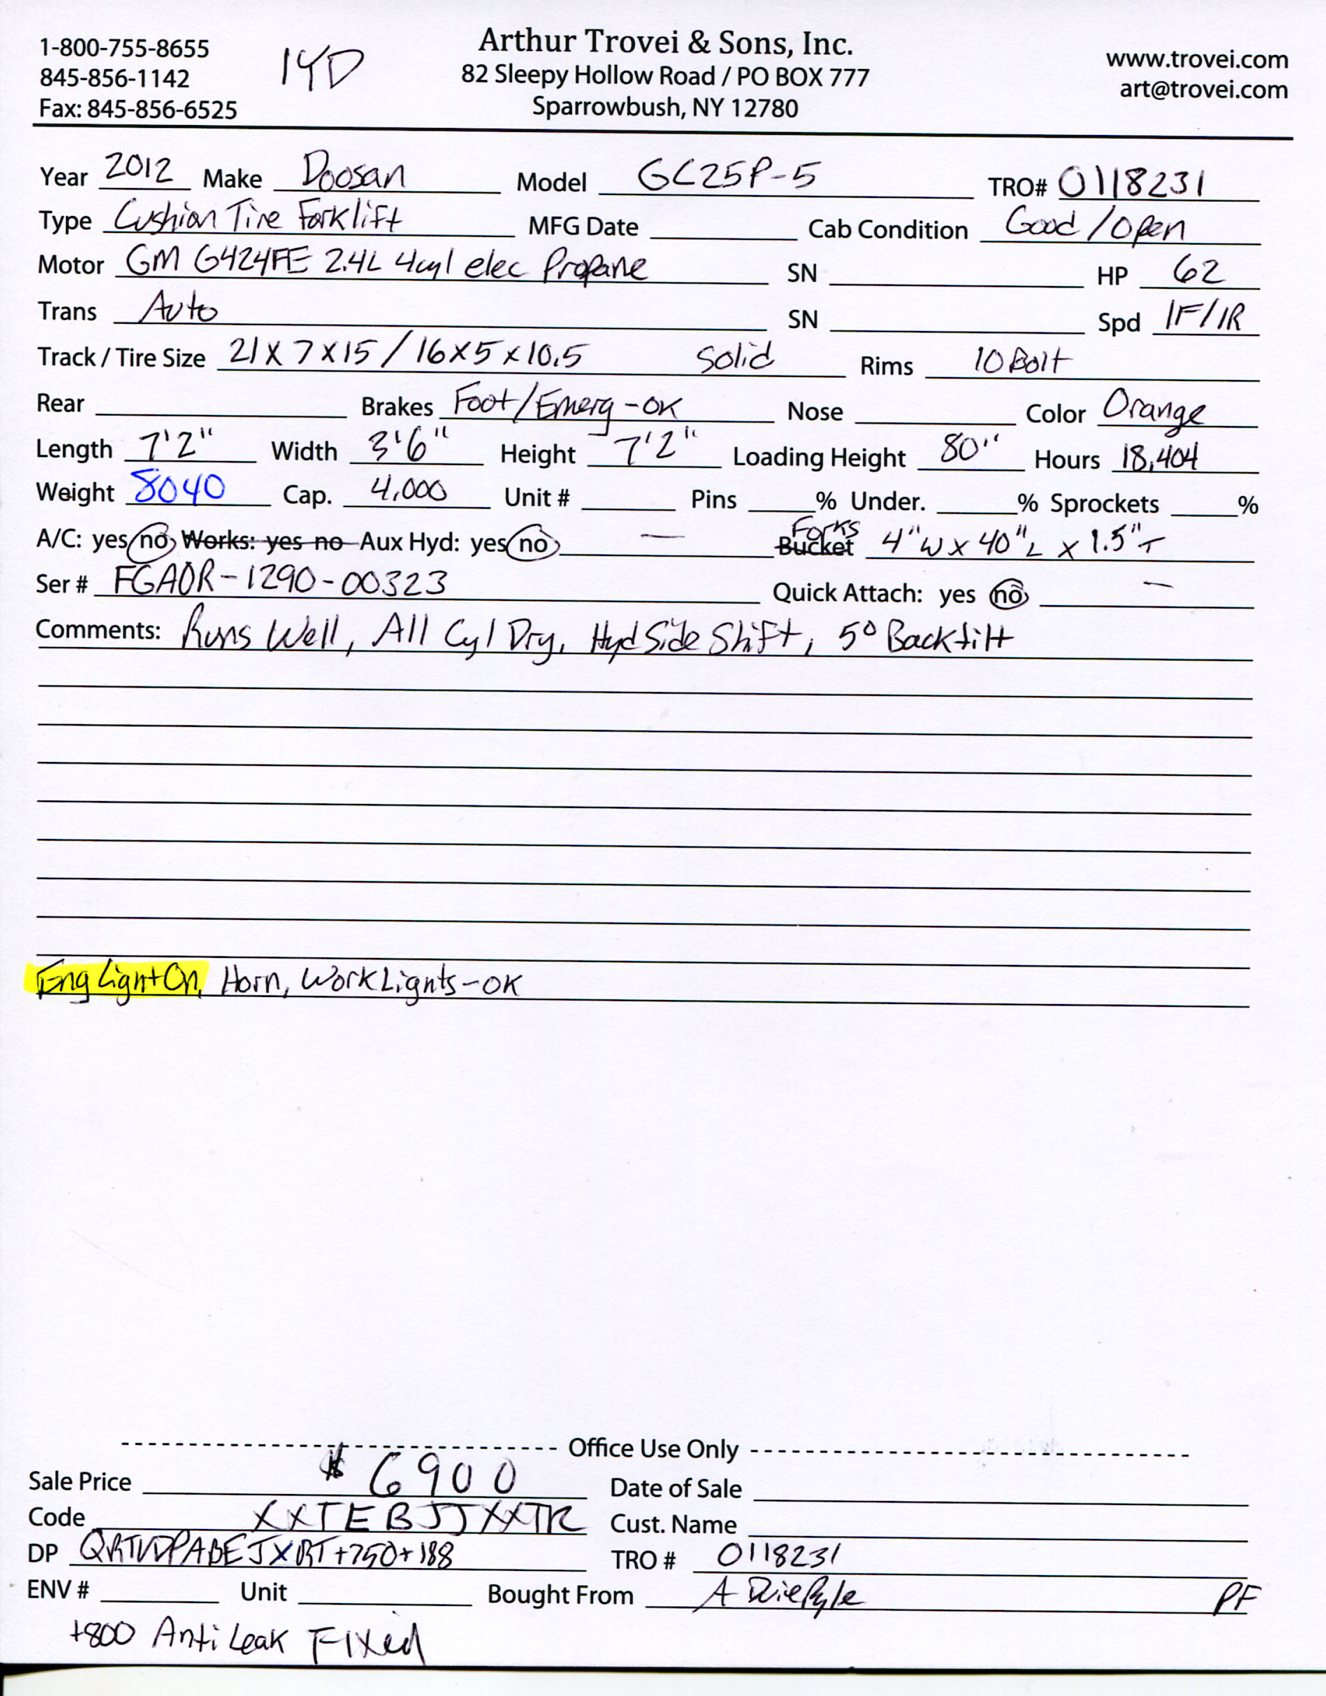 1-800-755-8655
845-856-1142
Fax: 845-856-6525
14D
Arthur Trovei & Sons, Inc.
82 Sleepy Hollow Road / PO BOX 777
Sparrowbush, NY 12780
www.trovei.com
art@trovei.com
Year 2012 Make Doosan Model GC25P-5 TRO# 0118231
Type Cushion Tire Forklift MFG Date Cab Condition Good/Open
Motor GM G424FE 2.4L 4cyl elec Propane SN HP 62
Trans Auto SN Spd 1F/1R
Track / Tire Size 21x7x15/16x5x10.5 Solid Rims 10 Bolt
Rear Brakes Foot/Emerg-OK Nose Color Orange
Length 7'2" Width 3'6" Height 7'2" Loading Height 80" Hours 18,404
Weight 8040 Cap. 4,000 Unit # Pins % Under. % Sprockets %
A/C: yes no Works: yes no Aux Hyd: yes no — Bucket Forks 4"W x 40"L x 1.5"T
Ser # FGA0R-1290-00323 Quick Attach: yes no —
Comments: Runs Well, All Cyl Dry, Hyd Side Shift, 5° Backtilt
Eng Light On, Horn, Work Lights-OK
Office Use Only
Sale Price $6900 Date of Sale
Code XXTEBJJXXTR Cust. Name
DP +750+188 TRO # 0118231
ENV # Unit Bought From A PF
+800 Anti Leak Fixed